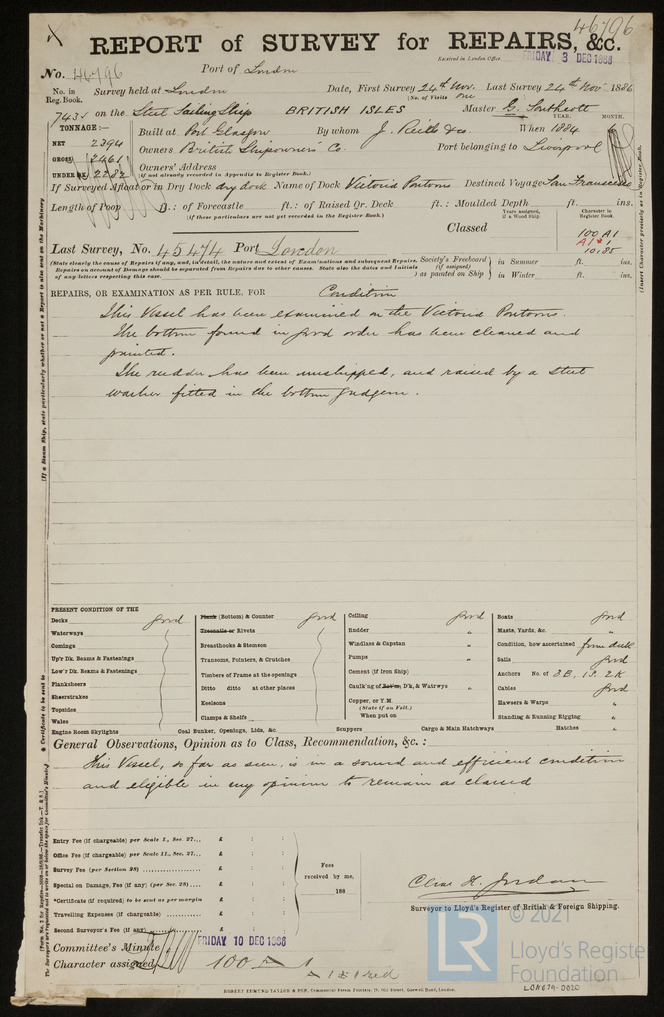 46796
REPORT of SURVEY for REPAIRS, &c.
Received in London Office. FRIDAY 3 DEC 1886
No. 46796 Port of London
No. in Reg. Book. Survey held at London Date, First Survey 24th Nov. Last Survey 24th Nov 1886
(No. of Visits one
743 on the Steel Sailing Ship BRITISH ISLES Master G. Southcott
TONNAGE:— YEAR. MONTH.
NET 2394 Built at Port Glasgow By whom J. Reid & Co. When 1884
GROSS 2461 Owners British Shipowners' Co. Port belonging to Liverpool
UNDER DK. 2282 Owners' Address
(if not already recorded in Appendix to Register Book.)
If Surveyed Afloat or in Dry Dock dry dock Name of Dock Victoria Pontoons Destined Voyage San Francisco
Length of Poop ft.: of Forecastle ft.: of Raised Qr. Deck ft.: Moulded Depth ft. ins.
(if these particulars are not yet recorded in the Register Book.)
Years assigned, if a Wood Ship. Character in Register Book.
Classed 100 A1
A1
10,85
Last Survey, No. 45474 Port London
(State clearly the cause of Repairs if any, and, in detail, the nature and extent of Examinations and subsequent Repairs. Repairs on account of Damage should be separated from Repairs due to other causes. State also the dates and Initials of any letters respecting this case.
Society's Freeboard (if assigned) as painted on Ship in Summer ft. ins.
in Winter ft. ins.
REPAIRS, OR EXAMINATION AS PER RULE, FOR Condition
This Vessel has been examined on the Victoria Pontoons.
The bottom found in good order has been cleaned and
painted.
The rudder has been unshipped, and raised by a steel
washer fitted in the bottom gudgeon.
PRESENT CONDITION OF THE
Decks good
Waterways
Comings
Up'r Dk. Beams & Fastenings
Low'r Dk. Beams & Fastenings
Planksheers
Sheerstrakes
Topsides
Wales
Engine Room Skylights
Plank (Bottom) & Counter good
Treenails or Rivets
Breasthooks & Stemson
Transoms, Pointers, & Crutches
Timbers of Frame at the openings
Ditto ditto at other places
Keelsons
Clamps & Shelfs
Coal Bunker, Openings, Lids, &c.
Ceiling good
Rudder "
Windlass & Capstan "
Pumps "
Cement (if Iron Ship) "
Caulk'ng of Bot'm, D'k, & Watrwys "
Copper, or Y.M.
(State if on Felt.)
When put on
Scuppers Cargo & Main Hatchways
Boats good
Masts, Yards, &c. "
Condition, how ascertained from deck
Sails good
Anchors No. of 3B, 1S. 2K
Cables good
Hawsers & Warps "
Standing & Running Rigging "
Hatches "
General Observations, Opinion as to Class, Recommendation, &c.:
This Vessel, so far as seen, is in a sound and efficient condition
and eligible in my opinion to remain as classed
Entry Fee (if chargeable) per Scale I., Sec. 27... £ : :
Office Fee (if chargeable) per Scale II., Sec. 27... £ : :
Survey Fee (per Section 28) £ : :
Special on Damage, Fee (if any) (per Sec. 28).... £ : :
*Certificate (if required) to be sent as per margin £ : :
Travelling Expenses (if chargeable) £ : :
Second Surveyor's Fee (if any) £ : :
Fees received by me, 188
Surveyor to Lloyd's Register of British & Foreign Shipping.
Committee's Minute FRIDAY 10 DEC 1886
Character assigned 100 A 1
ROBERT EDMUND TAYLOR & SON, Commercial Steam Printers, 19, Old Street, Goswell Road, London.
(If a Steam Ship, state particularly whether or not a Report is also sent on the Machinery.
* Certificate to be sent to
(Insert Character precisely as in Register Book.
LR © 2021
Lloyd's Register
Foundation
LON674-0020